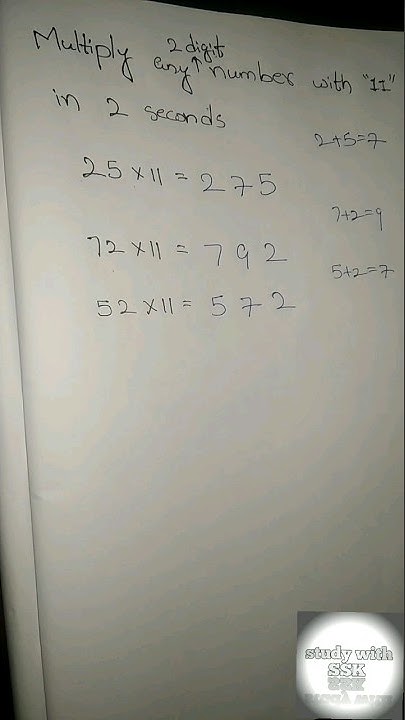 Multiply any 2 digit number with "11"
in 2 seconds
2+5=7
25 × 11 = 275
7+2=9
72 × 11 = 792
5+2=7
52 × 11 = 572
study with
SSK